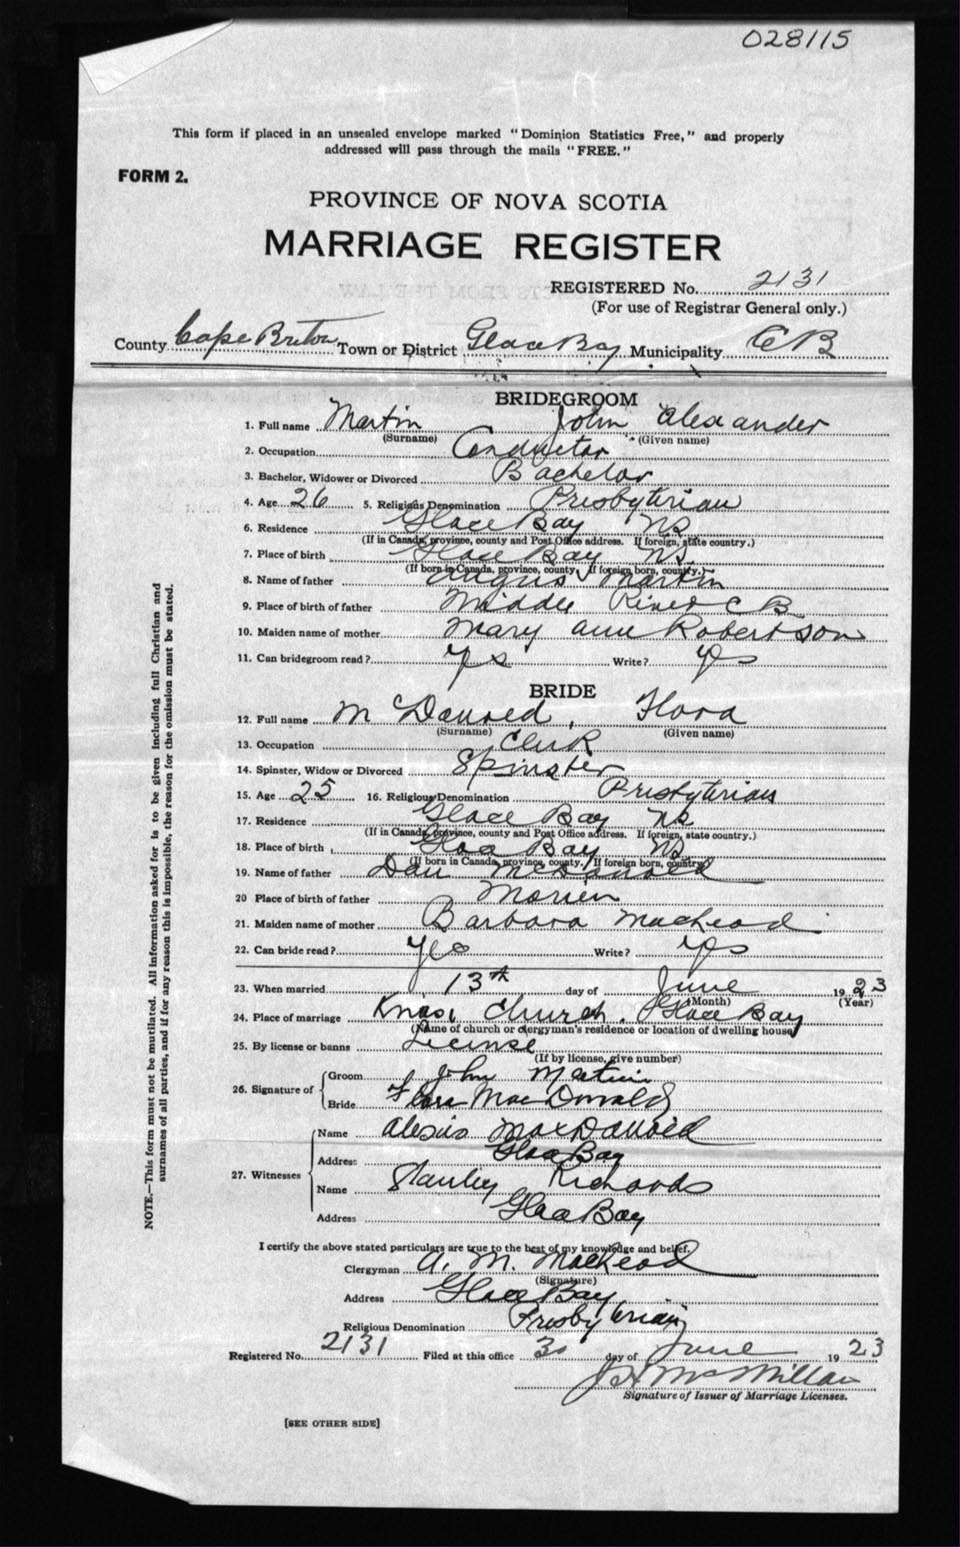 028115
This form if placed in an unsealed envelope marked "Dominion Statistics Free," and properly
addressed will pass through the mails "FREE."
FORM 2.
PROVINCE OF NOVA SCOTIA
MARRIAGE REGISTER
REGISTERED No. 2131
(For use of Registrar General only.)
County Cape Breton Town or District Glace Bay Municipality C B
BRIDEGROOM
1. Full name Martin John Alexander
(Surname) (Given name)
2. Occupation Conductor
3. Bachelor, Widower or Divorced Bachelor
4. Age 26 5. Religious Denomination Presbyterian
6. Residence Glace Bay NS
(If in Canada, province, county and Post Office address. If foreign, state country.)
7. Place of birth Glace Bay NS
(If born in Canada, province, county. If foreign born, country.)
8. Name of father Angus Martin
9. Place of birth of father Middle River C B
10. Maiden name of mother Mary Ann Robertson
11. Can bridegroom read? Yes Write? Yes
BRIDE
12. Full name McDonald, Flora
(Surname) (Given name)
13. Occupation Clerk
14. Spinster, Widow or Divorced Spinster
15. Age 25 16. Religious Denomination Presbyterian
17. Residence Glace Bay NS
(If in Canada, province, county and Post Office address. If foreign, state country.)
18. Place of birth Glace Bay NS
(If born in Canada, province, county. If foreign born, country)
19. Name of father Dan McDonald
20 Place of birth of father Morien
21. Maiden name of mother Barbara MacLeod
22. Can bride read? Yes Write? Yes
23. When married 13th day of June 1923
(Month) (Year)
24. Place of marriage Knox Church, Glace Bay
(Name of church or clergyman's residence or location of dwelling house)
25. By license or banns License
(If by license, give number)
26. Signature of Groom John Martin
Bride Flora MacDonald
27. Witnesses Name Alexis MacDonald
Address Glace Bay
Name Stanley Richards
Address Glace Bay
I certify the above stated particulars are true to the best of my knowledge and belief.
Clergyman A. M. MacLeod
(Signature)
Address Glace Bay
Religious Denomination Presbyterian
Registered No. 2131 Filed at this office 30 day of June 1923
J A McMillan
Signature of Issuer of Marriage Licenses.
[SEE OTHER SIDE]
NOTE.—This form must not be mutilated. All information asked for is to be given including full Christian and
surnames of all parties, and if for any reason this is impossible, the reason for the omission must be stated.